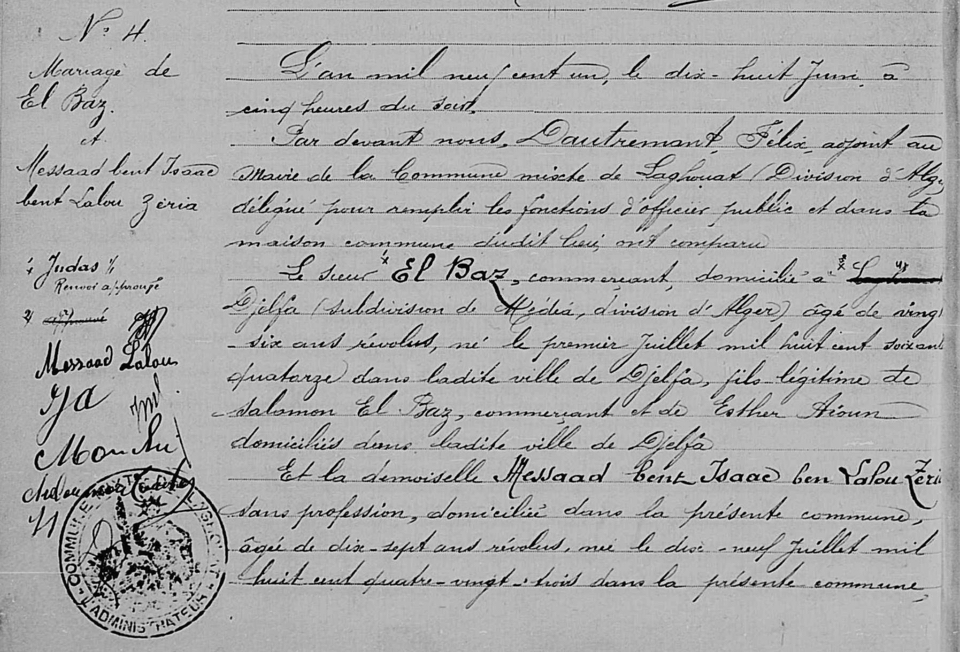 N° 4.
Mariage de
El Baz.
et
Messaad bent Isaac
bent Lalou Zéria
x Judas //
Renvoi approuvé
Messaad Lalou
COMMUNE MIXTE
L'ADMINISTRATEUR
L'an mil neuf cent un, le dix-huit Juin à
cinq heures du soir.
Par devant nous, Dautremant, Félix, adjoint au
Maire de la Commune mixte de Laghouat (Division d'Alge
délégué pour remplir les fonctions d'officier public et dans la
maison commune dudit lieu, ont comparu
Le sieur x El Baz, commerçant, domicilié à
Djelfa (subdivision de Médéa, division d'Alger) âgé de vingt
six ans révolus, né le premier Juillet mil huit cent soixan
quatorze dans ladite ville de Djelfa, fils légitime de
Salomon El Baz, commerçant et de Esther Aïoun
domiciliés dans ladite ville de Djelfa
Et la demoiselle Messaad bent Isaac ben Lalou Zéria
sans profession, domiciliée dans la présente commune,
âgée de dix-sept ans révolus, née le dix-neuf Juillet mil
huit cent quatre-vingt-trois dans la présente commune,